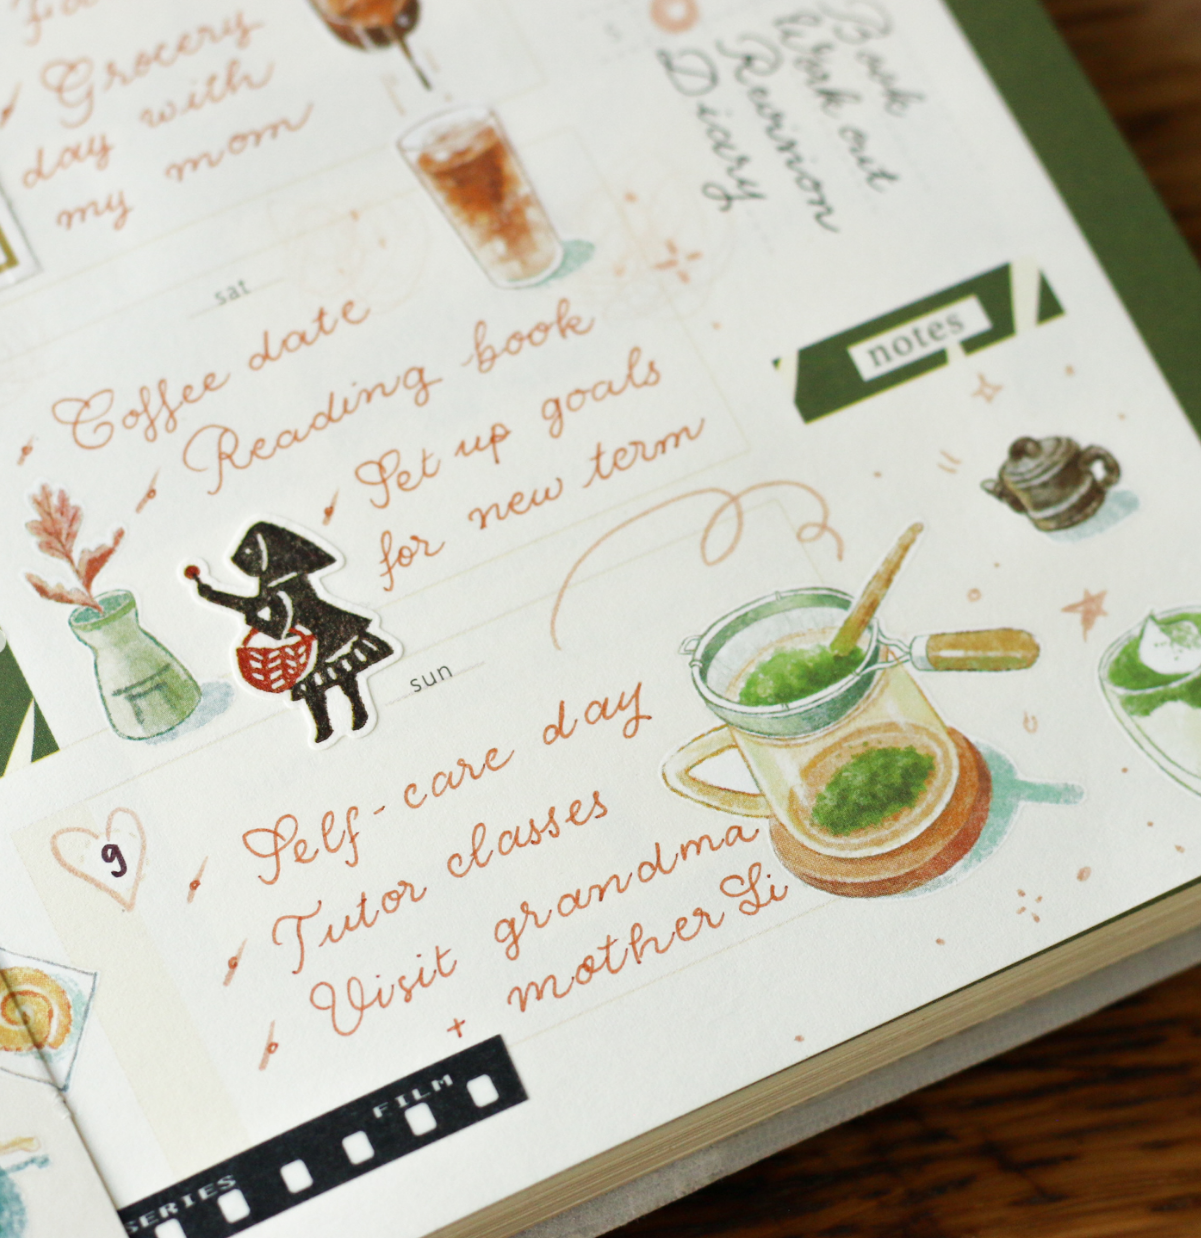 Grocery
day with
my mom
Book
Work out
Revision
Diary
sat
Coffee date
Reading book
Set up goals
for new term
notes
sun
9
Self-care day
Tutor classes
Visit grandma
+ mother Li
FILM
SERIES